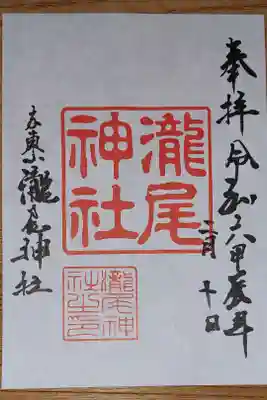 奉拝 令和六甲辰年
二月十日
瀧尾
神社
瀧尾神
社之印
京東山 瀧尾神社